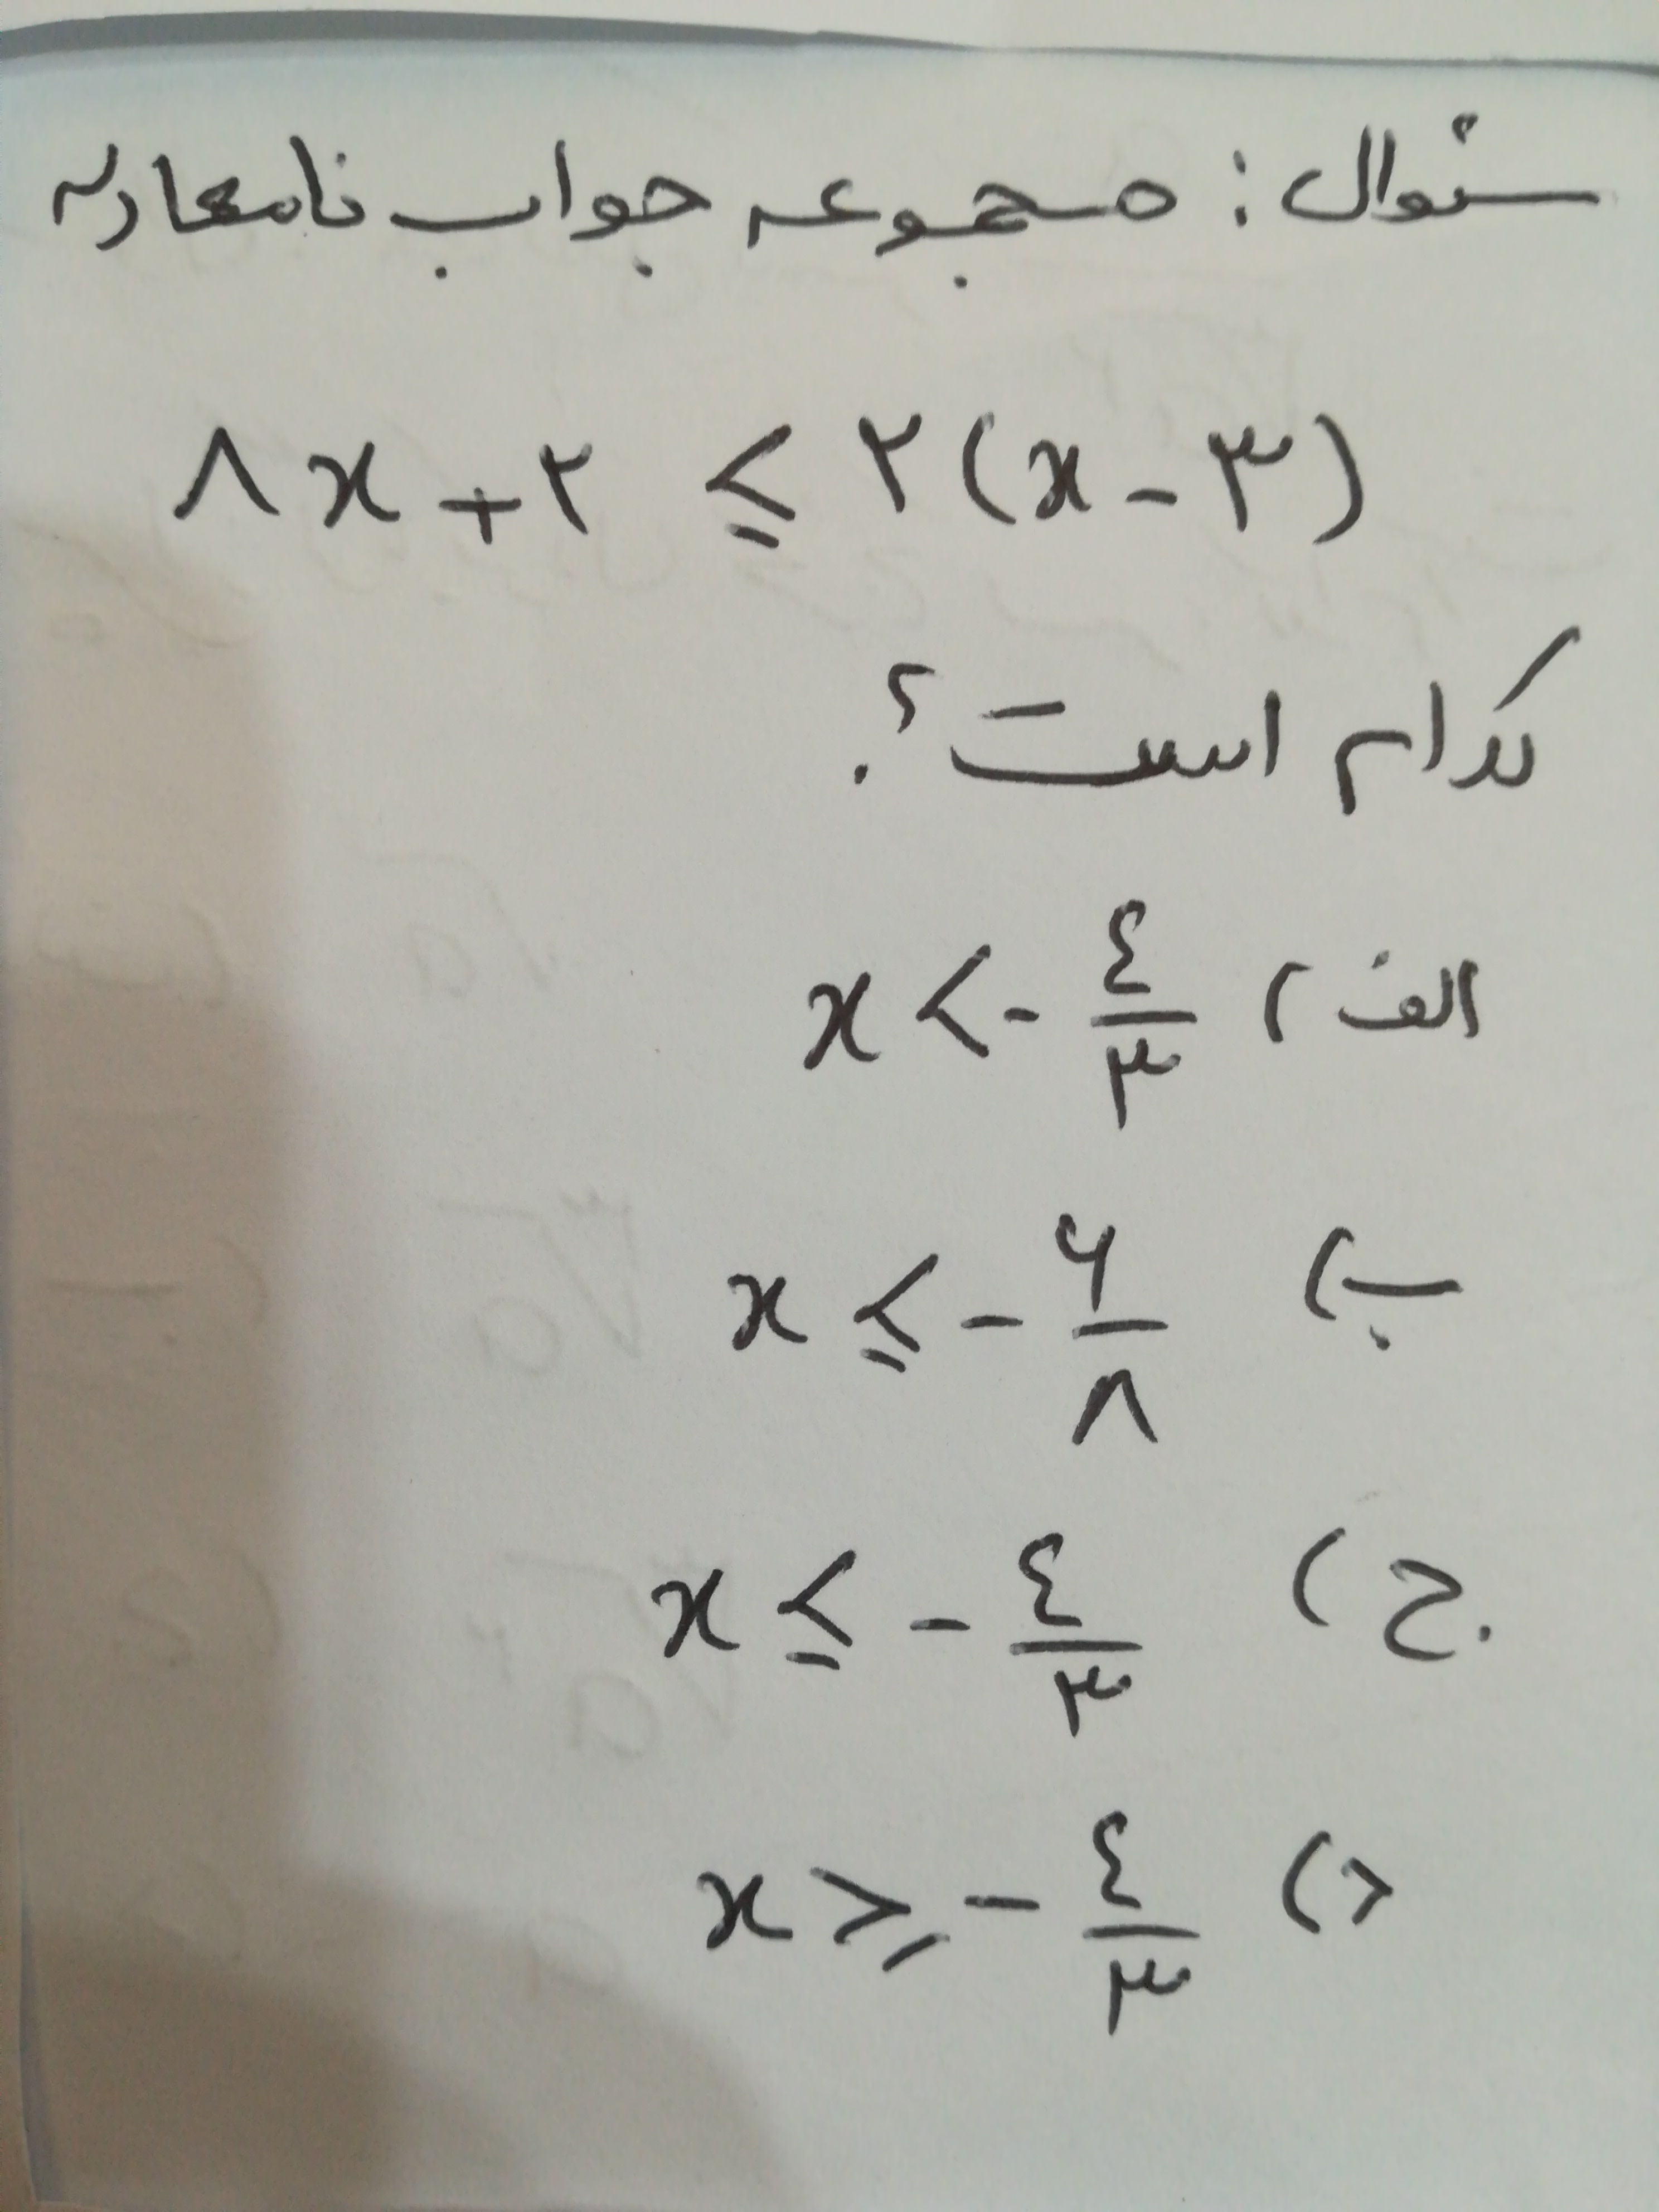 سئوال: مجموعه جواب نامعادله
۸x + ۲ ≤ ۲(x - ۳)
کدام است؟
الف) x < -٤/۳
ب) x ≤ -۶/۸
ج) x ≤ -٤/۳
د) x ≥ -٤/۳